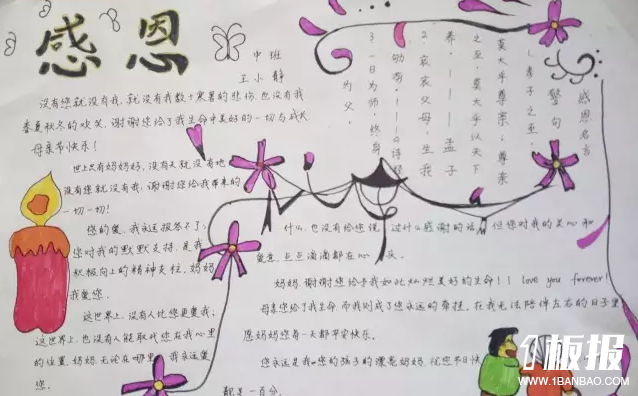 感恩
中班
王小静
没有您就没有我,就没有我数十寒暑的悲伤,也没有我
春夏秋冬的欢笑,谢谢您给了我生命中美好的一切与成长
母亲节快乐!
世上只有妈妈好,没有天就没有地
没有您就没有我,谢谢您给我带来的
一切一切!
您的爱,我永远报答不了;
您对我的默默支持,是我
积极向上的精神支柱,妈妈
我爱您.
这世界上,没有人比您更爱我;
这世界上,也没有人能取代您在我心里
的位置.妈妈,无论在哪里,我永远爱
您.
感恩名言
警句
1 孝子之至,
莫大乎尊亲;尊亲
之至,莫大乎以天下
养.———孟子
2 哀哀父母,生我
劬劳.———诗经
3 一日为师,终身
为父.
什么,也没有给您说过什么感谢的话,但您对我的关心和
爱意,点点滴滴都在心头.
妈妈,谢谢您给予我如此灿烂美好的生命!I love you forever!
母亲您给了我生命,而我则成了您永远的牵挂,在我无法陪伴左右的日子里
愿妈妈您每一天都平安快乐.
您永远是我和您的孩子的漂亮妈妈,祝您节日快
都是一百分.
板报
WWW.1BANBAO.COM